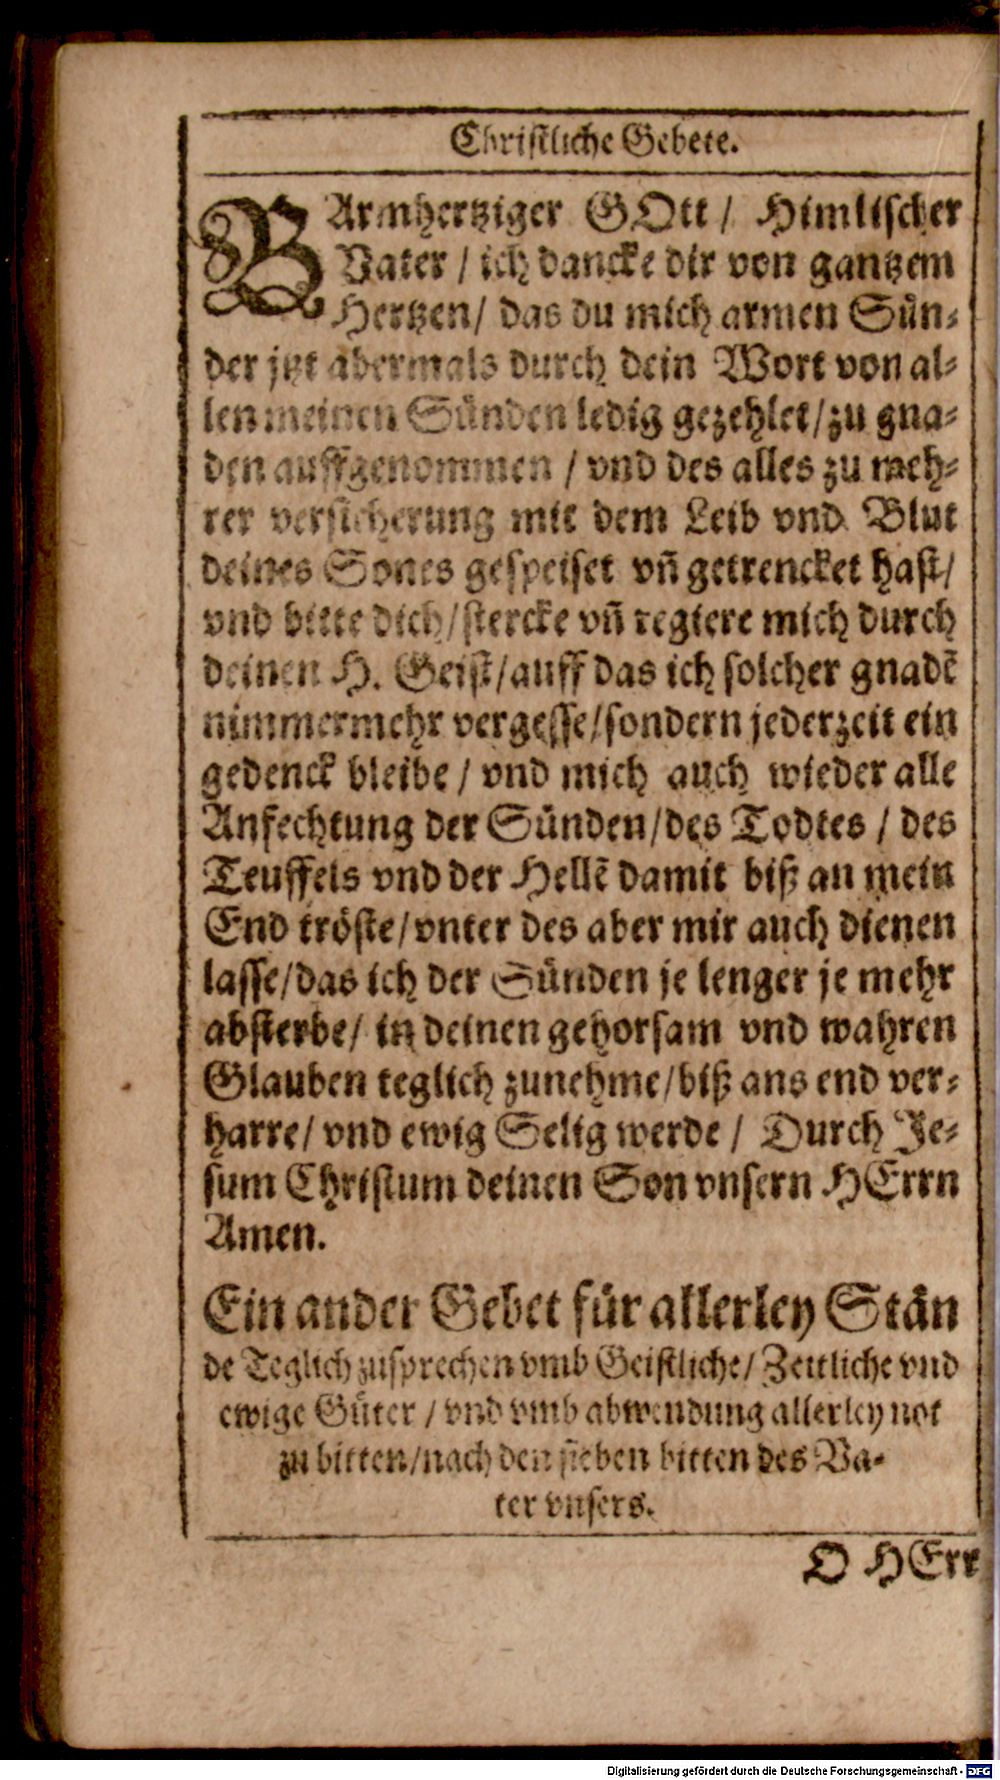 Christliche Gebete.
BArmhertziger GOtt / Himlischer
Vater / ich dancke dir von gantzem
Hertzen / das du mich armen Sün-
der jtzt abermals durch dein Wort von al-
len meinen Sünden ledig gezehlet / zu gna-
den auffgenommen / vnd des alles zu meh-
rer versicherung mit dem Leib vnd Blut
deines Sones gespeiset vñ getrencket hast /
vnd bitte dich / stercke vñ regiere mich durch
deinen H. Geist / auff das ich solcher gnadẽ
nimmermehr vergesse / sondern jederzeit ein
gedenck bleibe / vnd mich auch wieder alle
Anfechtung der Sünden / des Todtes / des
Teuffels vnd der Hellẽ damit biß an mein
End tröste / vnter des aber mir auch dienen
lasse / das ich der Sünden je lenger je mehr
absterbe / in deinen gehorsam vnd wahren
Glauben teglich zunehme / biß ans end ver-
harre / vnd ewig Selig werde / Durch Je-
sum Christum deinen Son vnsern HErrn
Amen.
Ein ander Gebet für allerley Stän
de Teglich zusprechen vmb Geistliche / Zeitliche vnd
ewige Güter / vnd vmb abwendung allerley not
zu bitten / nach den sieben bitten des Va-
ter vnsers.
O HErr
Digitalisierung gefördert durch die Deutsche Forschungsgemeinschaft - DFG